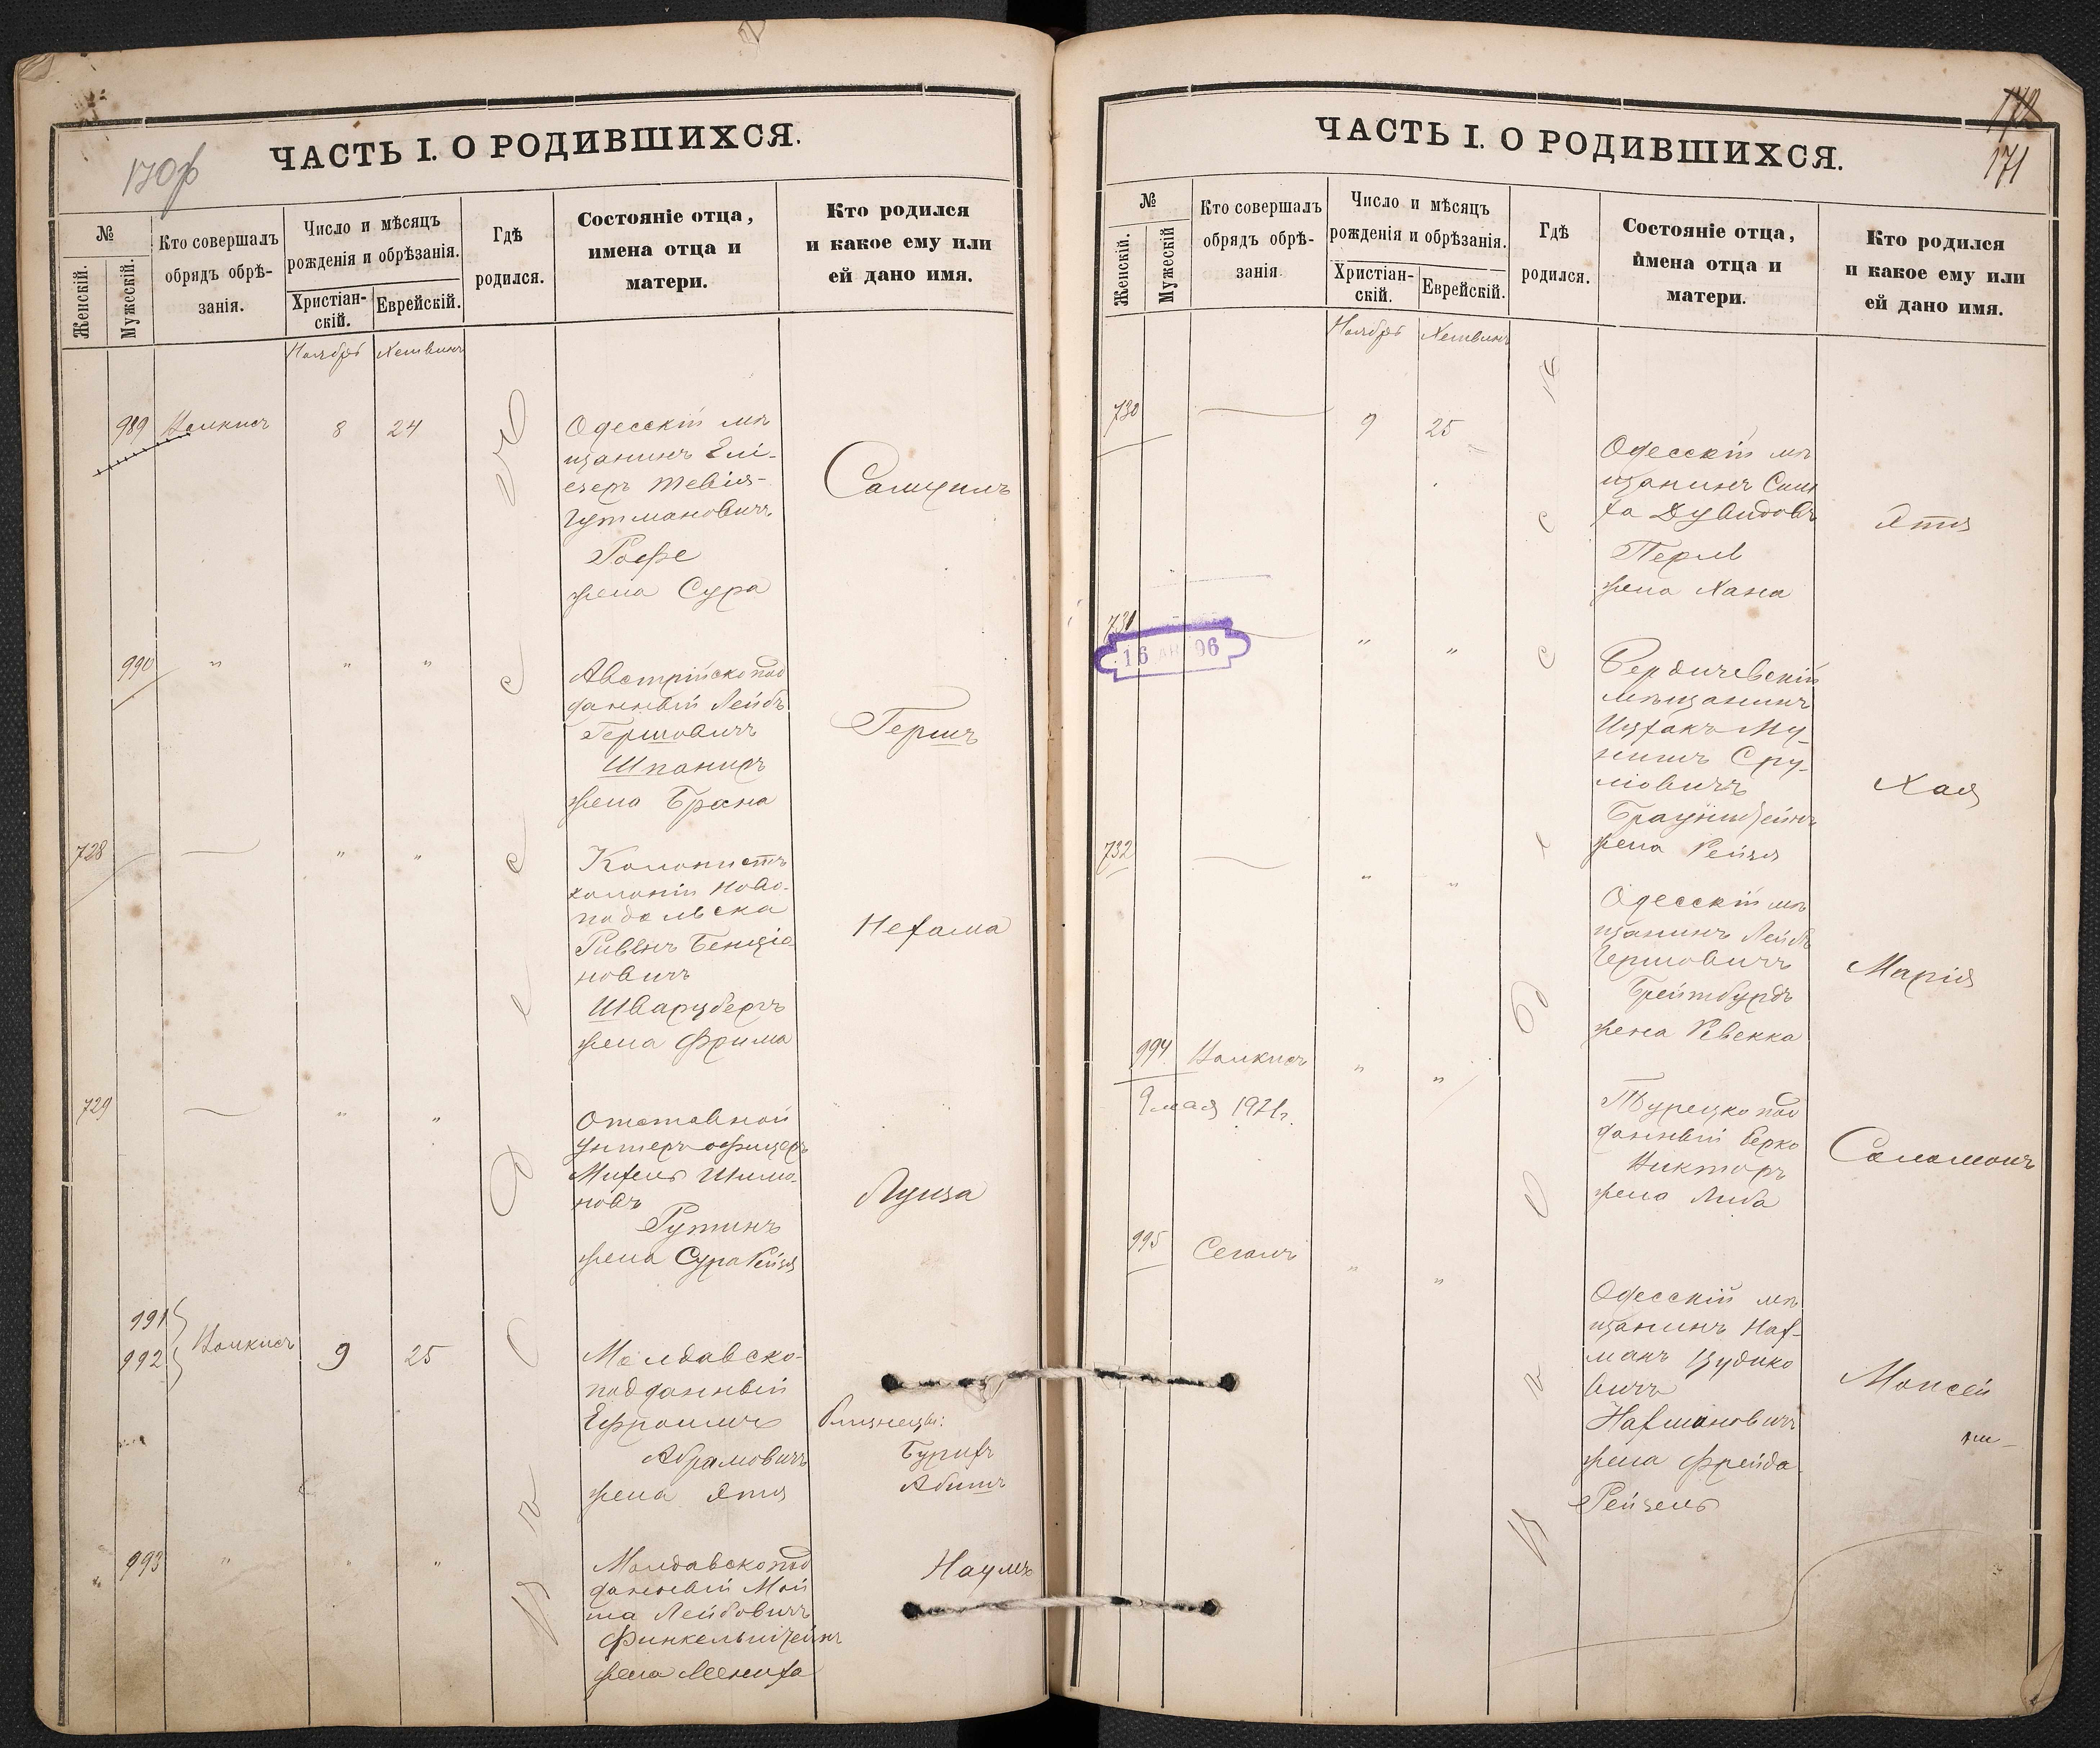 170 об
ЧАСТЬ I. О РОДИВШИХСЯ.
№
Женскій.
Мужескій.
Кто совершалъ
обрядъ обрѣ-
занія.
Число и мѣсяцъ
рожденія и обрѣзанія.
Христіан-
скій.
Еврейскій.
Гдѣ
родился.
Состояніе отца,
имена отца и
матери.
Кто родился
и какое ему или
ей дано имя.
Ноябрь Хешвинъ
989
8 24
Одесскій мѣ
щанинъ Елі-
езеръ Тевія-
Гутмановичъ
Рофе
жена Сура
Самуилъ
990 " " "
Австрійско под
данный Лейбъ
Гершовичъ
Шпаниръ
жена Брана
Гершъ
728 — " "
Колонистъ
колоніи Ново-
подольска
Ривенъ Бенціо
новичъ
Шварцбергъ
жена Фрима
Нехама
729 — " "
Отставной
унтеръ-офицеръ
Михель Шимо-
новъ
Рутинъ
жена Сура Рейзя
Луиза
991
992
9 25
Молдавско-
подданный
Ефроимъ
Абрамовичъ
жена Этя
Близнецы:
Бурихъ
Абишъ
993 " " "
Молдавско под
данный Мой
ша Лейбовичъ
Финкельштейнъ
жена Мениха
Наумъ
172
171
ЧАСТЬ I. О РОДИВШИХСЯ.
№
Женскій.
Мужескій
Кто совершалъ
обрядъ обрѣ-
занія.
Число и мѣсяцъ
рожденія и обрѣзанія.
Христіан-
скій.
Еврейскій.
Гдѣ
родился.
Состояніе отца,
имена отца и
матери.
Кто родился
и какое ему или
ей дано имя.
Ноябрь Хешвинъ
730 — 9 25
Одесскій мѣ
щанинъ Сим
ха Дувидовъ
Перль
жена Хана
Этя
731 — " "
16 96
Бердичевскій
мѣщанинъ
Ицхакъ Му-
нишъ Сру-
ліовичъ
Браунштейнъ
жена Рейзя
Хая
732 — " "
Одесскій мѣ
щанинъ Лейбъ
Гершовичъ
Брейтбурдъ
жена Ревекка
Марія
994 " "
9 мая 1921 г.
Турецко под
данный Берко
Никторъ
жена Либа
Соломонъ
995 Сегалъ " "
Одесскій мѣ
щанинъ Нах-
манъ Цудико
вичъ
Нахмановичъ
жена Фрейда
Рейзель
Моисей